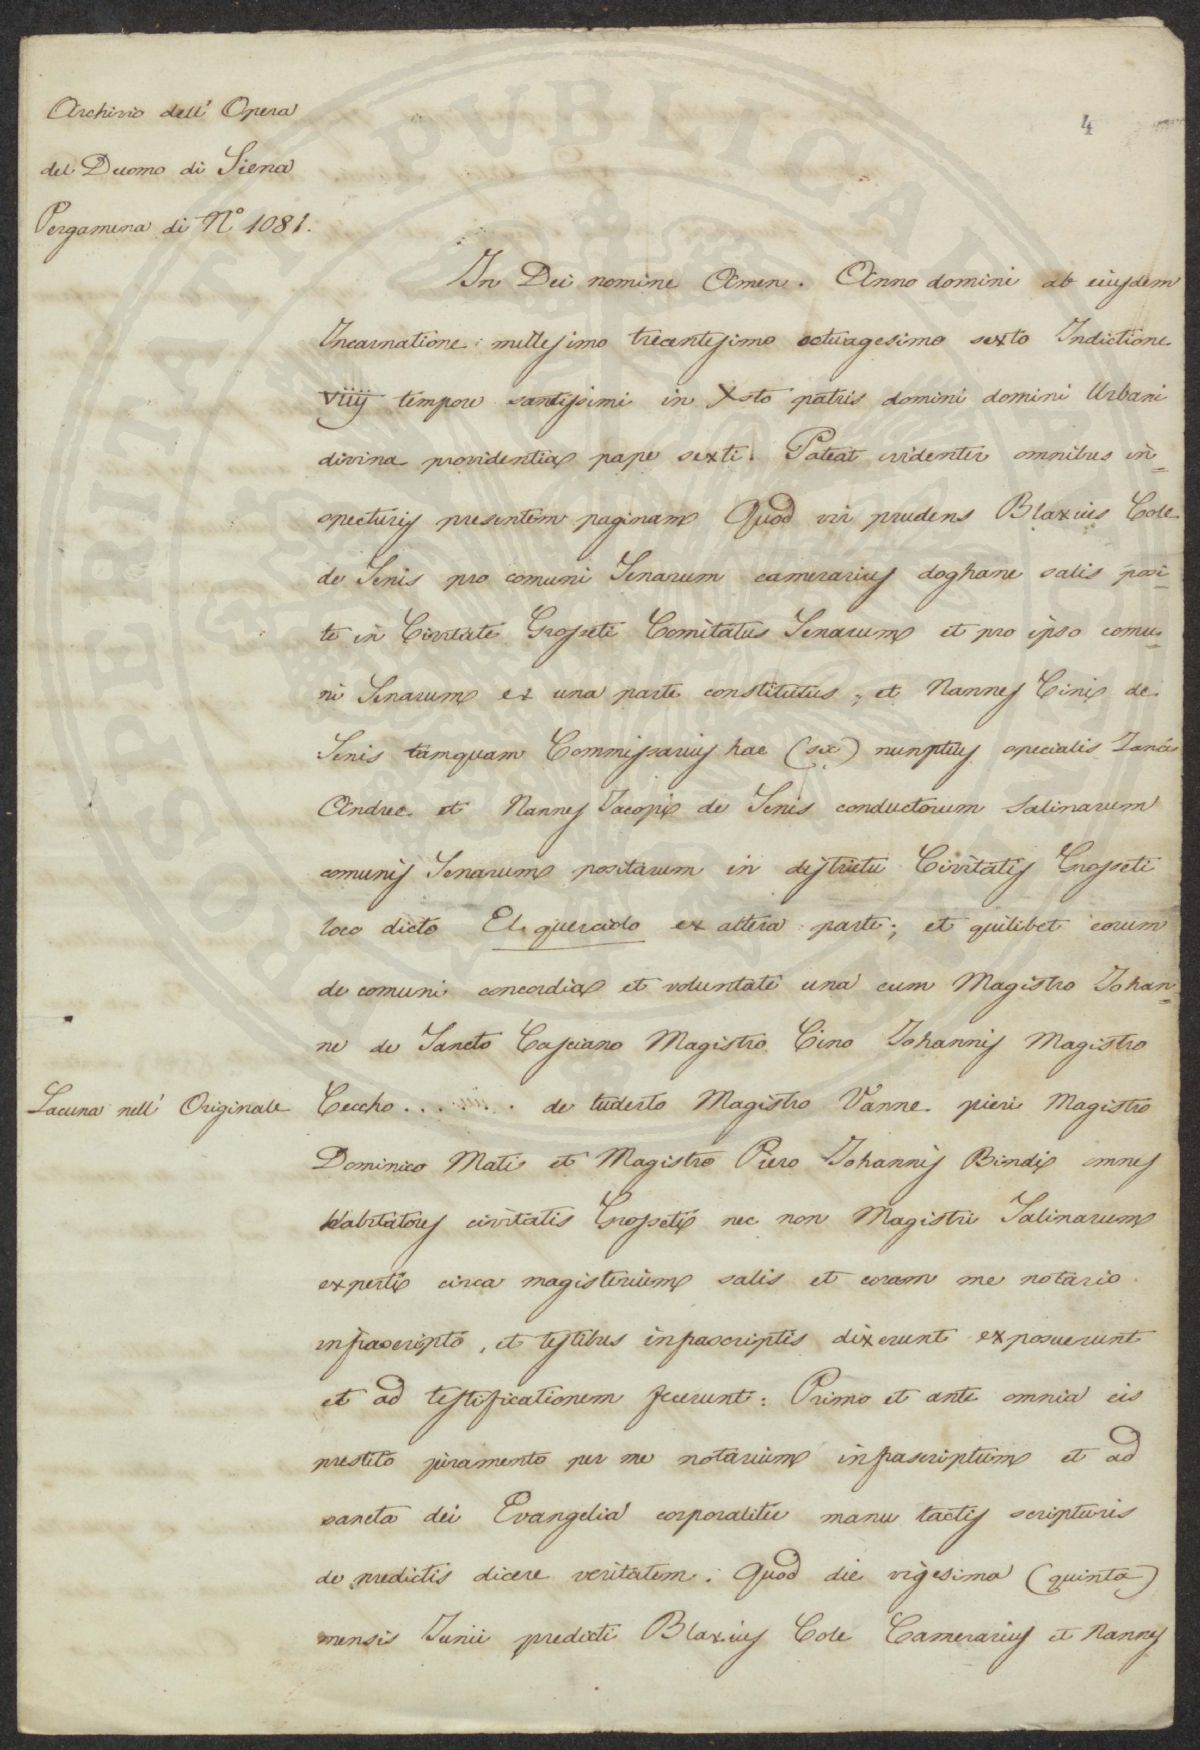 Archivio dell' Opera
del Duomo di Siena
Pergamena di N.º 1081.
4
In Dei nomine Amen. Anno domini ab eiusdem
Incarnatione millesimo trecentesimo octuagesimo sexto Indictione
viiij tempore santissimi in Xsto patris domini domini Urbani
divina providentia pape sexti. Pateat evidenter omnibus in=
specturis presentem paginam Quod vir prudens Blaxius Cole
de Senis pro comuni Senarum camerarius doghane salis posi=
te in Civitate Grosseti Comitatus Senarum et pro ipso comu=
ni Senarum ex una parte constitutus, et Nannes Cini de
Senis tamquam Commissarius hac (sic) nunptius specialis
Andree et Nannes Jacopi de Senis conductorum Salinarum
comunis Senarum positarum in districtu Civitatis Grosseti
loco dicto El querciolo ex altera parte; et quilibet eorum
de comuni concordia et voluntate una cum Magistro Johan=
ne de Sancto Casciano Magistro Cino Johannis Magistro
Lacuna nell' Originale Ceccho . . . . . . . de tuderto Magistro Vanne pieri Magistro
Dominico Matis et Magistro Piero Johannis Bindi omnes
habitatores civitatis Grosseti nec non Magistri Salinarum
experti circa magisterium salis et coram me notario
infrascripto, et testibus infrascriptis dixerunt exposuerunt
et ad testificationem fecerunt: Primo et ante omnia eis
prestito juramento per me notarium infrascriptum et ad
sancta dei Evangelia corporaliter manu tactis scripturis
de predictis dicere veritatem. Quod die vigesima (quinta)
mensis Junii predicti Blaxius Cole Camerarius et Nannes